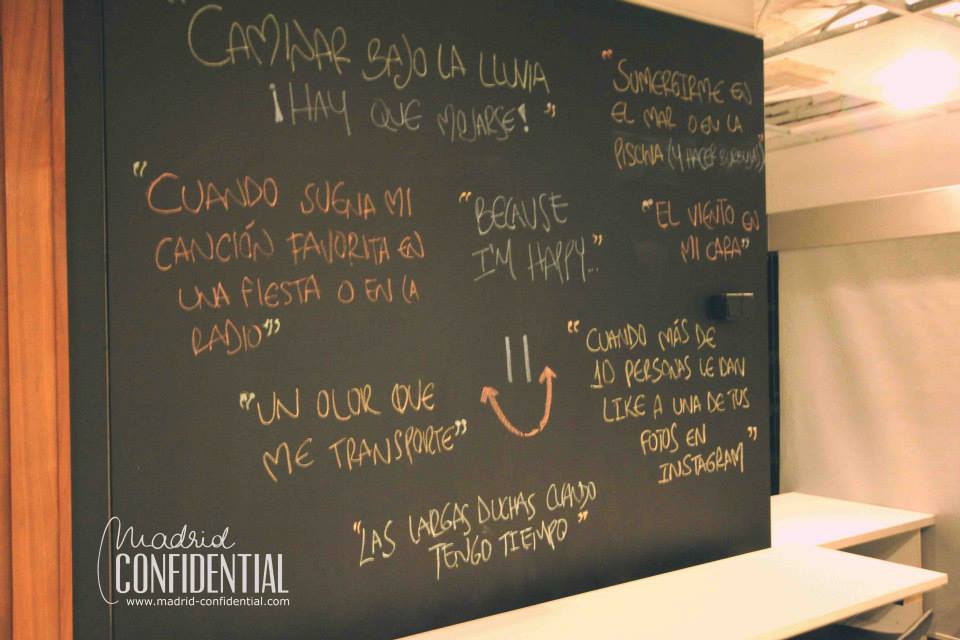 "CAMINAR BAJO LA LLUVIA
¡HAY QUE MOJARSE!"
"SUMERGIRME EN
EL MAR O EN LA
PISCINA (Y HACER BURBUJAS)"
"CUANDO SUENA MI
CANCIÓN FAVORITA EN
UNA FIESTA O EN LA
RADIO"
"BECAUSE
I'M HAPPY..."
"EL VIENTO EN
MI CARA"
"CUANDO MÁS DE
10 PERSONAS LE DAN
LIKE A UNA DE TUS
FOTOS EN
INSTAGRAM"
"UN OLOR QUE
ME TRANSPORTE"
"LAS LARGAS DUCHAS CUANDO
TENGO TIEMPO"
Madrid
CONFIDENTIAL
www.madrid-confidential.com